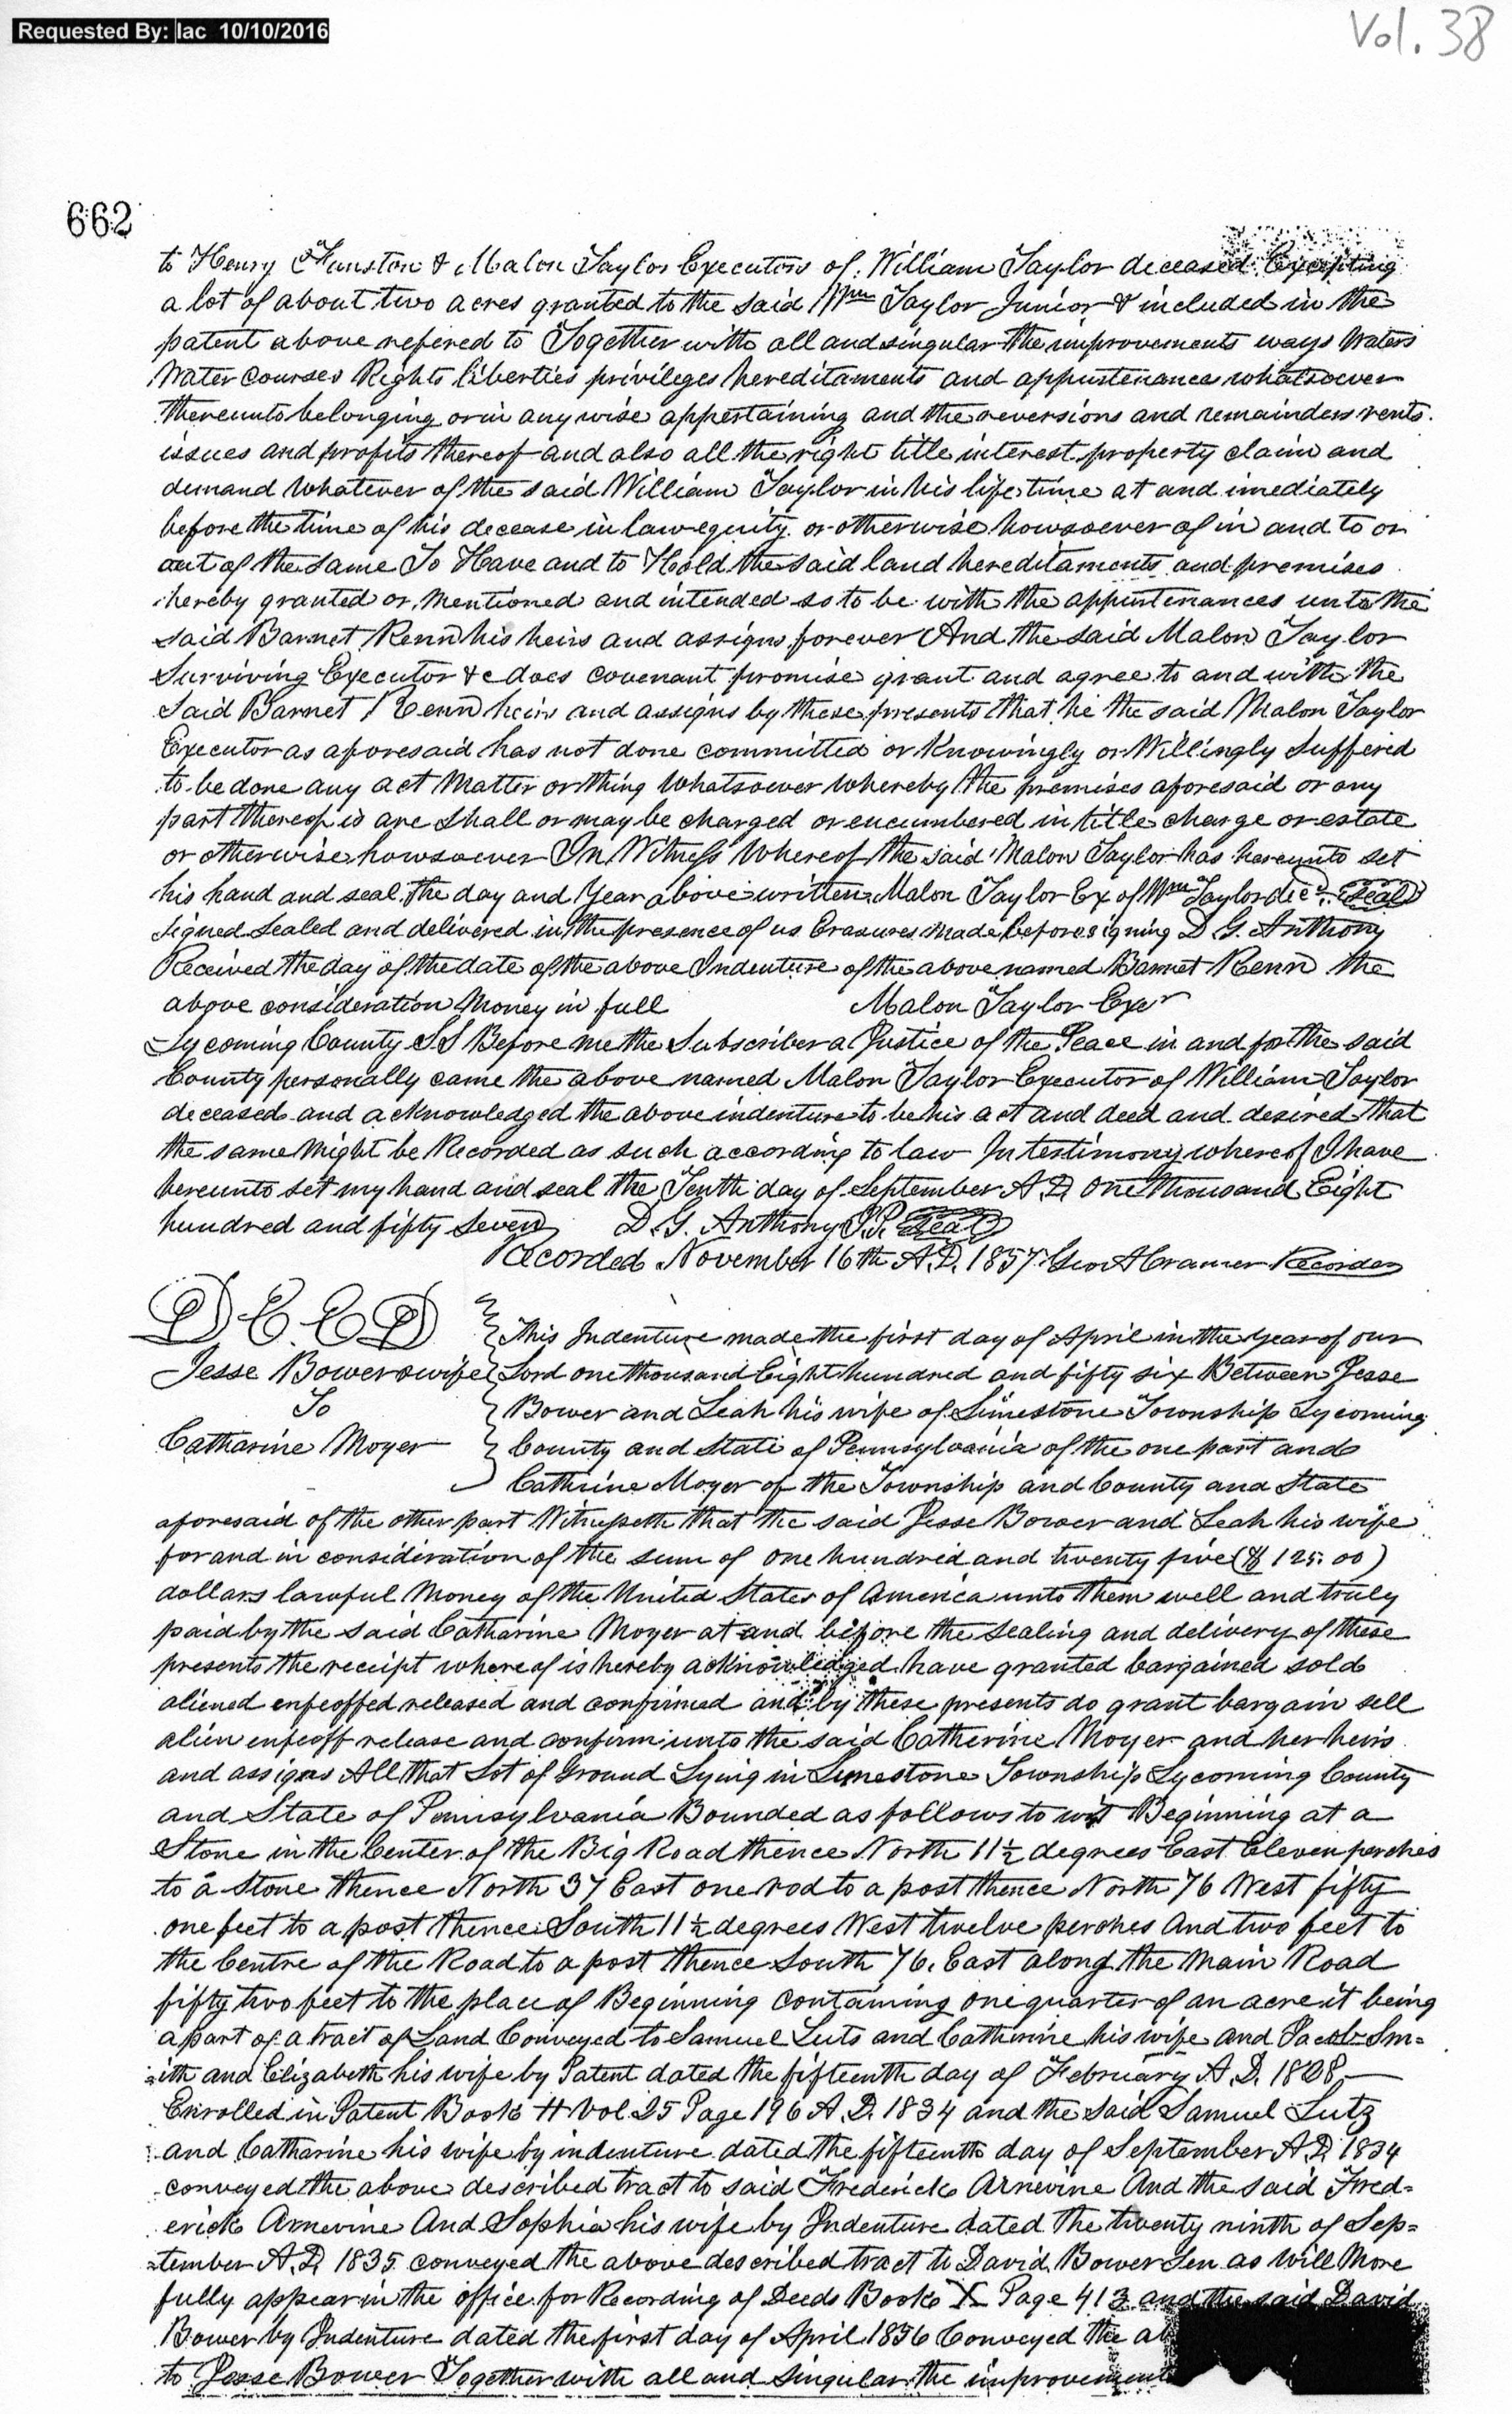 Requested By: lac 10/10/2016
Vol. 38
662
to Henry Funston & Malon Taylor Executors of William Taylor deceased Excepting
a lot of about two acres granted to the said Wm Taylor Junior & included in the
patent above refered to Together with all and singular the improvements ways Waters
Water courses Rights liberties privileges hereditaments and appurtenances whatsoever
thereunto belonging or in any wise appertaining and the reversions and remainders rents
issues and profits thereof and also all the right title interest property claim and
demand whatever of the said William Taylor in his life time at and imediately
before the time of his decease in law equity or otherwise howsoever of in and to or
out of the same To Have and to Hold the said land hereditaments and premises
hereby granted or mentioned and intended so to be with the appurtenances unto the
said Barnet Renn his heirs and assigns forever And the said Malon Taylor
Surviving Executor &c does covenant promise grant and agree to and with the
said Barnet Renn heirs and assigns by these presents that he the said Malon Taylor
Executor as aforesaid has not done committed or Knowingly or Willingly suffered
to be done any act Matter or thing whatsoever whereby the premises aforesaid or any
part thereof is are shall or may be charged or encumbered in title charge or estate
or otherwise howsoever In Witness Whereof the said Malon Taylor has hereunto set
his hand and seal the day and Year above written Malon Taylor Ex of Wm Taylor decd Seal
signed sealed and delivered in the presence of us Erasures made before signing D. G. Anthony
Received the day of the date of the above Indenture of the above named Barnet Renn the
above consideration Money in full Malon Taylor Exr
Lycoming County SS Before me the Subscriber a Justice of the Peace in and for the said
County personally came the above named Malon Taylor Executor of William Taylor
deceased and acknowledged the above indenture to be his act and deed and desired that
the same might be Recorded as such according to law In testimony whereof I have
hereunto set my hand and seal the Tenth day of September A.D. One thousand Eight
hundred and fifty seven D. G. Anthony J.P. Seal
Recorded November 16th A.D. 1857 Geo A Cramer Recorder
DEED
This Indenture made the first day of April in the year of our
Jesse Bower & wife Lord one thousand Eight hundred and fifty six Between Jesse
To Bower and Leah his wife of Limestone Township Lycoming
Catharine Moyer County and State of Pennsylvania of the one part and
Cathrine Moyer of the Township and County and State
aforesaid of the other part Witnesseth that the said Jesse Bower and Leah his wife
for and in consideration of the sum of one hundred and twenty five ($ 125.00)
dollars lawful Money of the United States of America unto them well and truly
paid by the said Catharine Moyer at and before the sealing and delivery of these
presents the receipt whereof is hereby acknowledged have granted bargained sold
aliened enfeoffed released and confirmed and by these presents do grant bargain sell
alien enfeoff release and confirm unto the said Catherine Moyer and her heirs
and assigns All that Lot of Ground Lying in Limestone Township Lycoming County
and State of Pennsylvania Bounded as follows to wit Beginning at a
Stone in the Center of the Big Road thence North 11½ degrees East Eleven perches
to a Stone thence North 37 East one rod to a post thence North 76 West fifty
one feet to a post thence South 11½ degrees West twelve perches And two feet to
the Centre of the Road to a post thence South 76. East along the Main Road
fifty two feet to the place of Beginning containing one quarter of an acre it being
a part of a tract of Land Conveyed to Samuel Luts and Catherine his wife and Jacob Sm=
=ith and Elizabeth his wife by Patent dated the fifteenth day of February A.D. 1808
Enrolled in Patent Book H Vol. 25 Page 196 A.D. 1834 and the said Samuel Lutz
and Catharine his wife by indenture dated the fifteenth day of September A.D. 1834
conveyed the above described tract to said Frederick Arnevine And the said Fred=
erick Arnevine And Sophia his wife by Indenture dated the twenty ninth of Sep=
=tember A.D. 1835 conveyed the above described tract to David Bower Sen as will More
fully appear in the office for Recording of Deeds Book X Page 413 and the said David
Bower by Indenture dated the first day of April 1856 Conveyed the
to Jesse Bower Together with all and singular the improvements